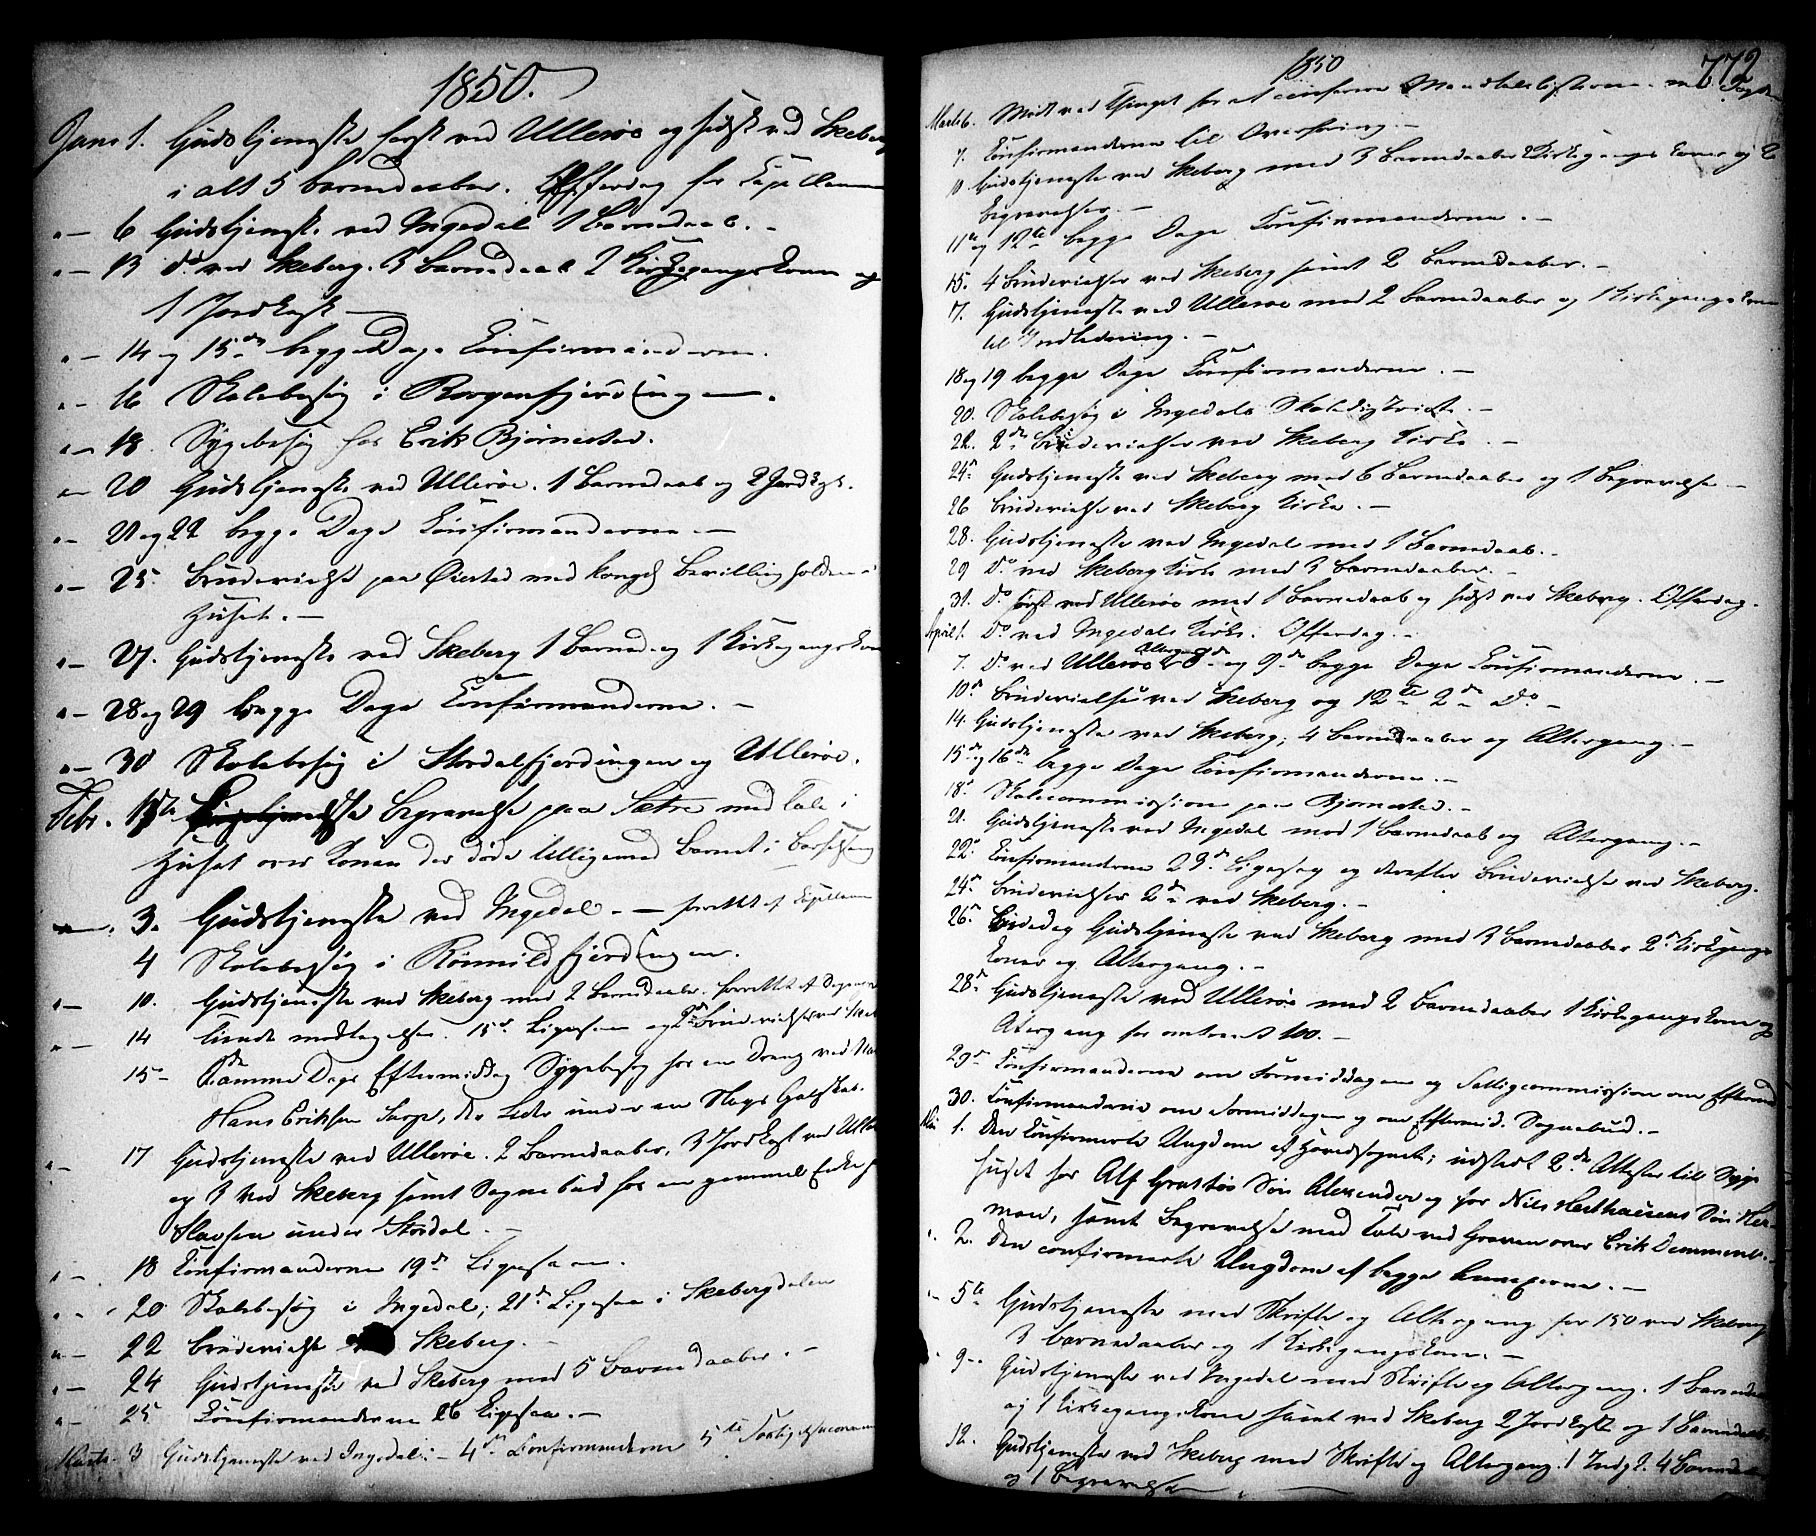 1850.
Janr 1. Gudstjeneste først ved Ullerøe og sidst ved Skeberg
i alt 5 Barnedaaber. Offerdag for Capellanen
" — 6 Gudstjeneste ved Ingedal 1 Barnedaab. -
" — 13 do ved Skeberg. 3 Barnedaab 2 Kirkegangskoner og
1 Jordkast —
" — 14 og 15de begge Dage Confirmanderne.
" — 16 Skolebesøg i Borgenfjerdingen.
" — 18. Sygebesøg hos Erik Bjørnestad.
" — 20 Gudstjeneste ved Ullerøe. 1 Barnedaab og 2 Jordkast.
" — 21 og 22 begge Dage Confirmanderne. —
" — 25. Brudevielse paa Øiestad med kongel Bevilling holden i
Huset. —
" — 27. Gudstjeneste ved Skeberg 1 Barned. og 1 Kirkegangskone
" — 28 og 29 begge Dage Confirmanderne. —
" — 30 Skolebesøg i Stordalfjerdingen og Ullerøe.
Febr. 1ste Begravelse paa Sætre med Tale i
Huset over Konen der døde tilligemed Barnet i Barselseng
3. Gudstjeneste ved Ingedal. — forrettet af Capellanen
4 Skolebesøg i Römmildfjerdingen.
" — 10. Gudstjeneste ved Skeberg med 2 Barnedaaber. forrettet af
" — 14 Tiende modtagelse. 15de Ligesaa og 2de Brudevielser ved Skeb
15 — Samme Dags Eftermiddag Sygebesøg hos en Dreng ved
Hans Eriksen der leder under en Slags Galskab.
" — 17 Gudstjeneste ved Ullerøe. 2 Barnedaaber, 3 Jordkast ved Ullerøe
og 3 ved Skeberg samt Sognebud hos en gammel Enke
under Stordal. —
" — 18 Confirmanderne 19de Ligesaa.
" — 20 Skolebesøg i Ingedal; 21de Ligesaa i Skebergdalen
" — 22 Brudevielse Skeberg. —
" — 24 Gudstjeneste ved Skeberg med 5 Barnedaaber. —
" — 25 Confirmanderne 26 Ligesaa. —
Marts. 3 Gudstjeneste ved Ingedal: — 4de Confirmanderne 5te
1850
772
Marts 6. Mødt ved Thinget for at conferere Mandtalslisterne
7. Confirmanderne til Overhøring. —
10 Gudstjeneste ved Skeberg med 3 Barnedaaber 2 Kirkegangs Koner og 2
Begravelser. —
11te og 12te begge Dage Confirmanderne. —
15. 4 Brudevielser ved Skeberg samt 2 Barnedaaber. —
17. Gudstjeneste ved Ullerøe med 2 Barnedaaber og 1 Kirkegangskone
til Indledning. —
18 og 19 begge Dage Confirmanderne. —
20. Skolebesøg i Ingedals Skoledistrict. —
22. 2de Brudevielser ved Skeberg Kirke. —
24de Gudstjeneste ved Skeberg med 6 Barnedaaber og 1 Begravelse. —
26 Brudevielse ved Skeberg Kirke. —
28. Gudstjeneste ved Ingedal med 1 Barnedaab. —
29 Do ved Skeberg Kirke med 3 Barnedaaber. —
31. Do først ved Ullerøe med 1 Barnedaab og sidst ved Skeberg. Offerdag.
April 1. Do ved Ingedals Kirke. Offerdag. —
Altergang
7. Do ved Ullerøe 8de og 9de begge Dage Confirmanderne. —
10de Brudevielse ved Skeberg og 12te 2de Do —
14. Gudstjeneste ved Skeberg; 4 Barnedaaber og Altergang. —
15de og 16de begge Dage Confirmanderne. —
18de Skolecommission paa Bjørnestad. —
21. Gudstjeneste ved Ingedal med 1 Barnedaab og Altergang. —
22de Confirmanderne 23de Ligesaa og derefter Brudevielse ved Skeberg.
24de Brudevielser 2de ved Skeberg. —
26de Bededag Gudstjeneste ved Skeberg med 3 Barnedaaber 2de Kirkegangs
Koner og Altergang. —
28de Gudstjeneste ved Ullerøe med 2 Barnedaaber 1 Kirkegangskone og
Altergang for omtrent 100. —
29de Confirmanderne om Formiddagen og Fattigcommission om Eftermid
30. Confirmanderne om Formiddagen og om Eftermid. Sognebud. —
Mai 1. Den Confirmerte Ungdom af Hovedsognet; udstedt 2de Attester til Syge
huset for Alf Søn Alexander og for Nils Søn
samt Begravelse med Tale ved Graven over Erik
2. Den confirmerte Ungdom af begge Annexerne. —
5te Gudstjeneste med Skrifte og Altergang for 150 ved Skeberg
3 Barnedaaber og 1 Kirkegangskone. —
9 — Gudstjeneste ved Ingedal med Skrifte og Altergang. 1 Barnedaab
og 1 Kirkegangskone samt ved Skeberg 2 Jordkast og 1 Barnedaab
12. Gudstjeneste ved Skeberg med Skrifte og Altergang. 1 Indg. 4 Barnedaaber
og 1 Begravelse —